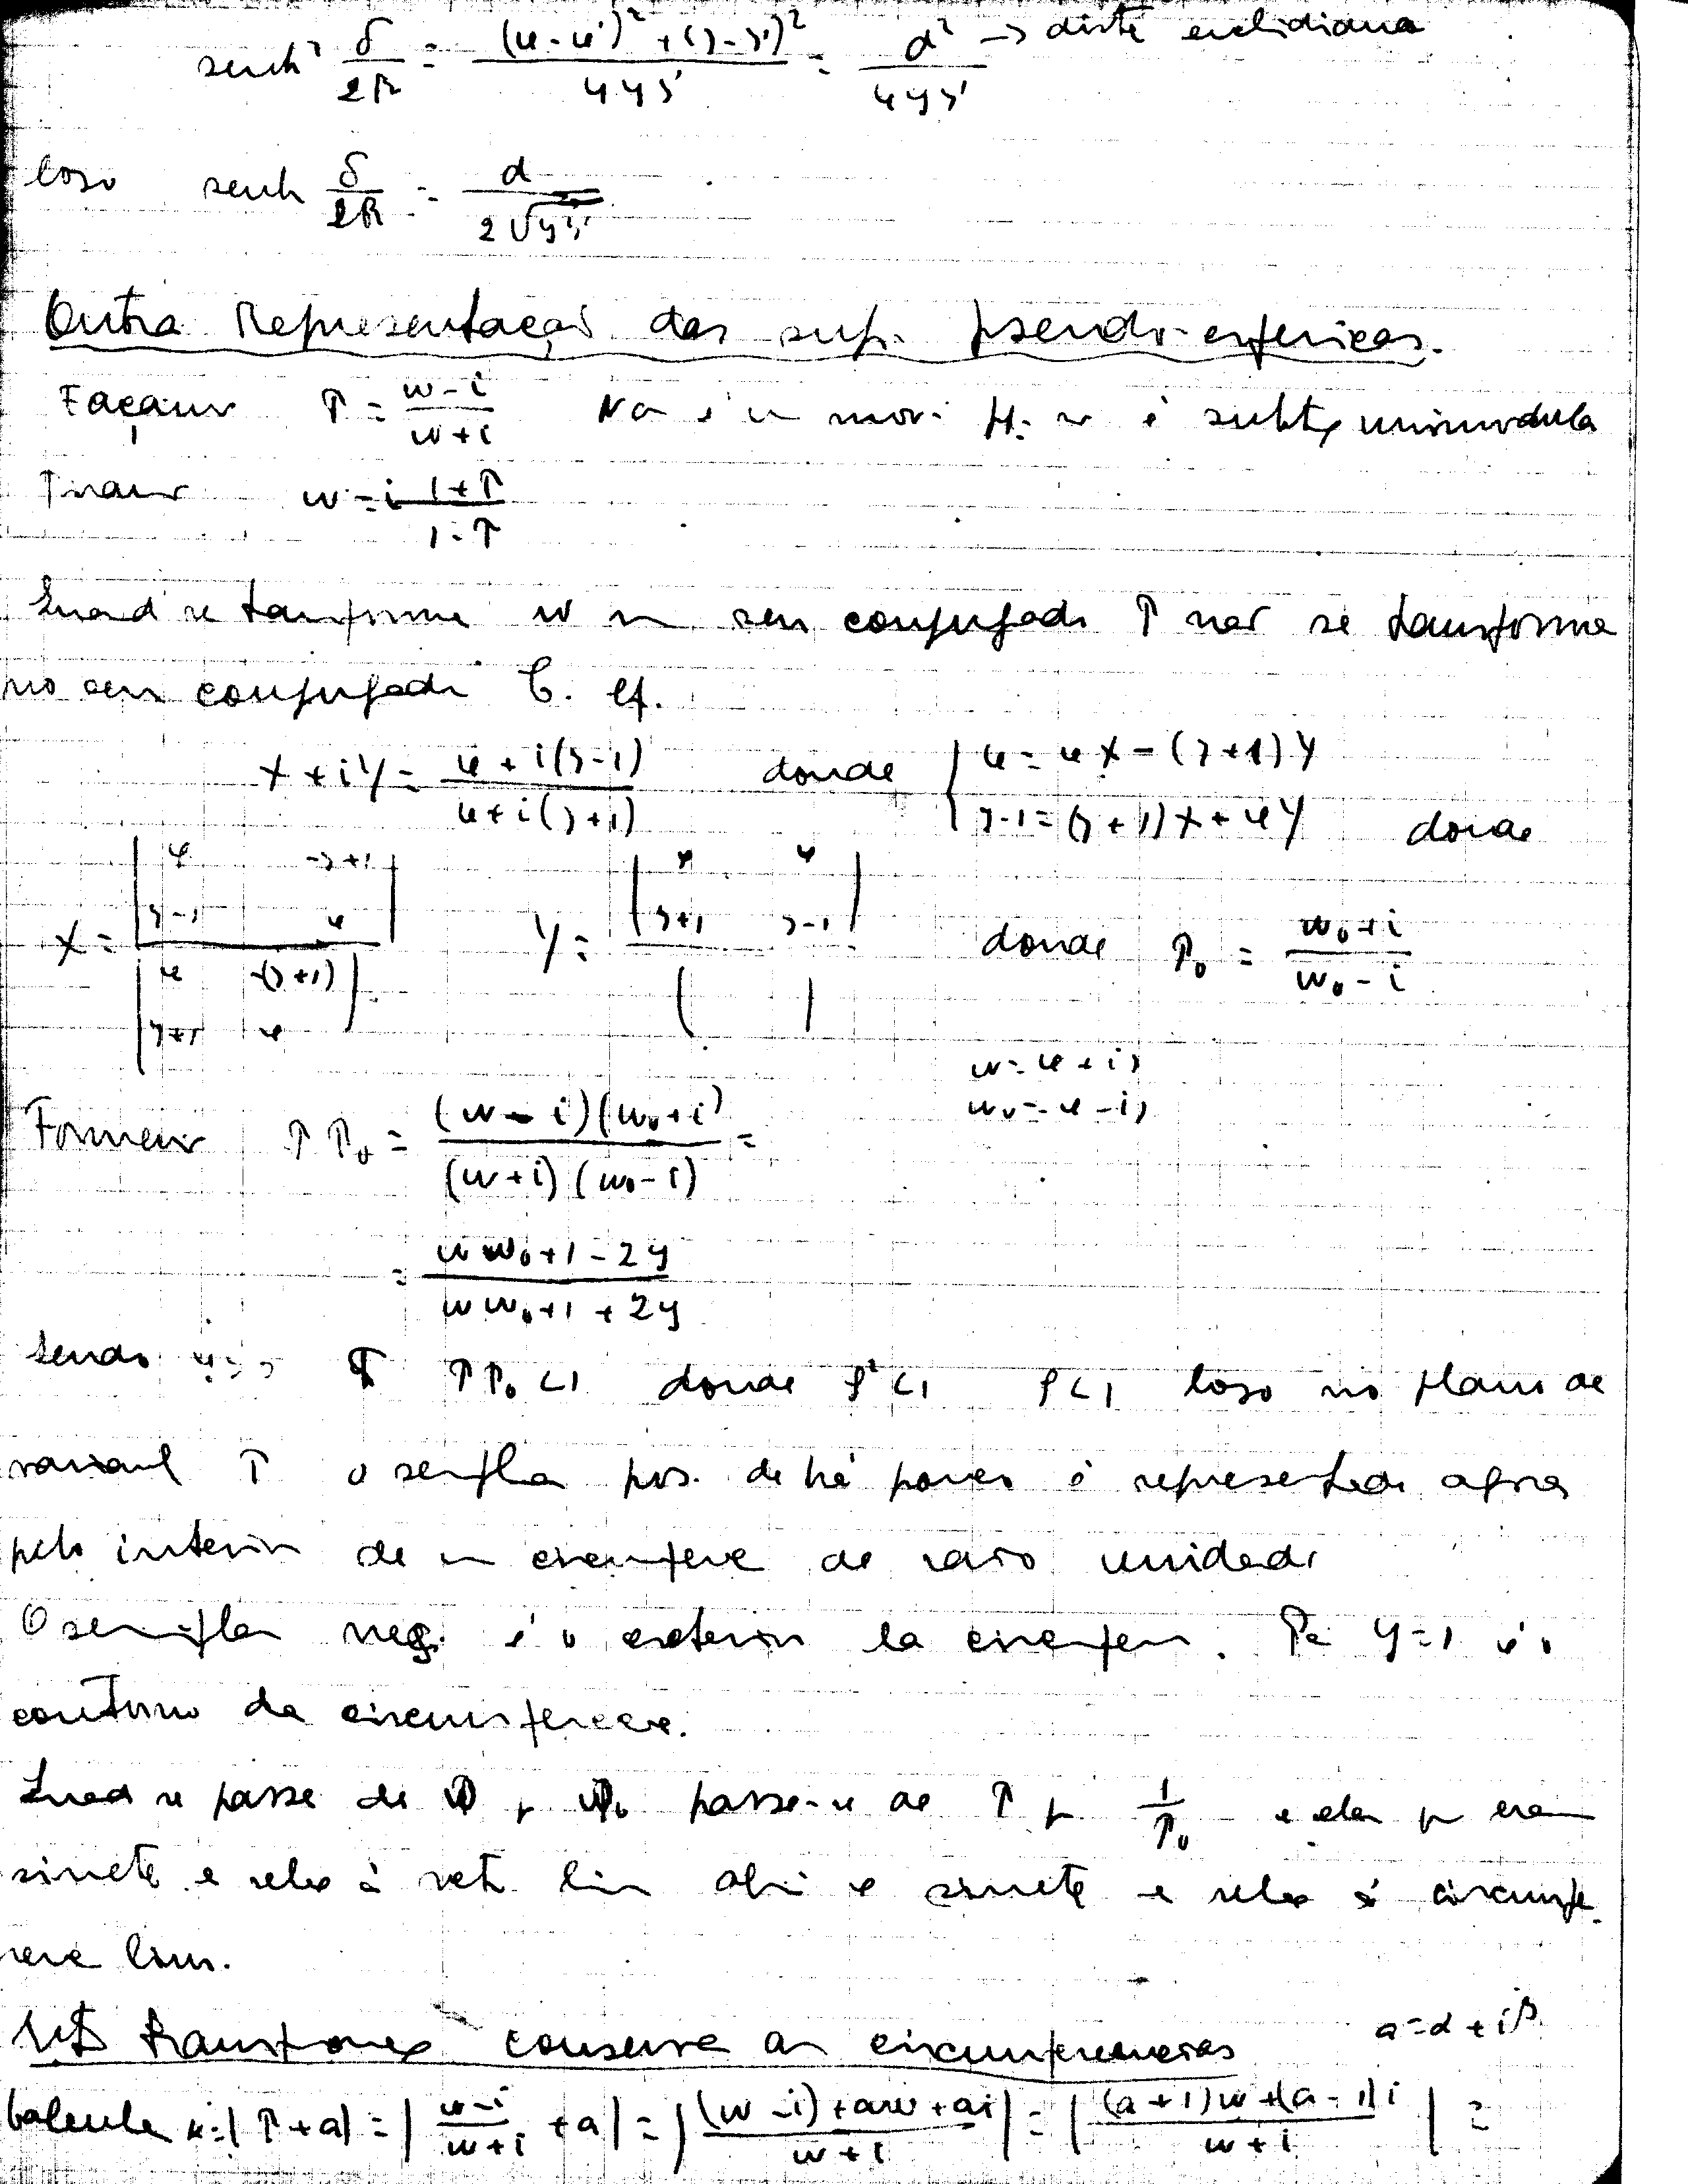 senh² δ/2R = ((u-u')² + (y-y')²)/(4yy') = d²/(4yy') → distª euclidiana
logo senh δ/2R = d/(2√(yy'))
Outra Representação das sup. pseudo-esfericas.
Façamos τ = (w-i)/(w+i) é subtç unimodula
Tiramos w = i (1+τ)/(1-τ)
Quand se transforma w n seu conjugado τ nao se transforma
no seu conjugado τ. ef.
X + iY = (u + i(y-1))/(u + i(y+1)) donde { u = uX - (y+1)Y
y-1 = (y+1)X + uY donde
X = |u -y+1; y-1 u| / |u -(y+1); y+1 u| Y = |u u; y+1 y-1| / | | donde τ₀ = (w₀+i)/(w₀-i)
w = u + iy
w₀ = u - iy
Formemos ττ₀ = ((w-i)(w₀+i))/((w+i)(w₀-i)) =
= (ww₀+1-2y)/(ww₀+1+2y)
Sendo ττ₀<1 donde ρ²<1 ρ<1 logo no plano de
variavel τ o semipla pos. de há pouco é representado agora
pelo interior de u circunfere de raio unidade
O semipla neg. é o exterior da circunfer. Pa y=1 é o
contorno da circunferece.
Quad se passe de w p w₀ passa-se de τ p 1/τ₀ e eles p eram
simetç e relaç à retª lim são e simetç e relaç à circunfe
rece lim.
transformaç conserva as circunferencias a=α+iβ
Calculo k=|τ+a| = |(w-i)/(w+i) + a| = |((w-i)+aw+ai)/(w+i)| = |((a+1)w+(a-1)i)/(w+i)| =